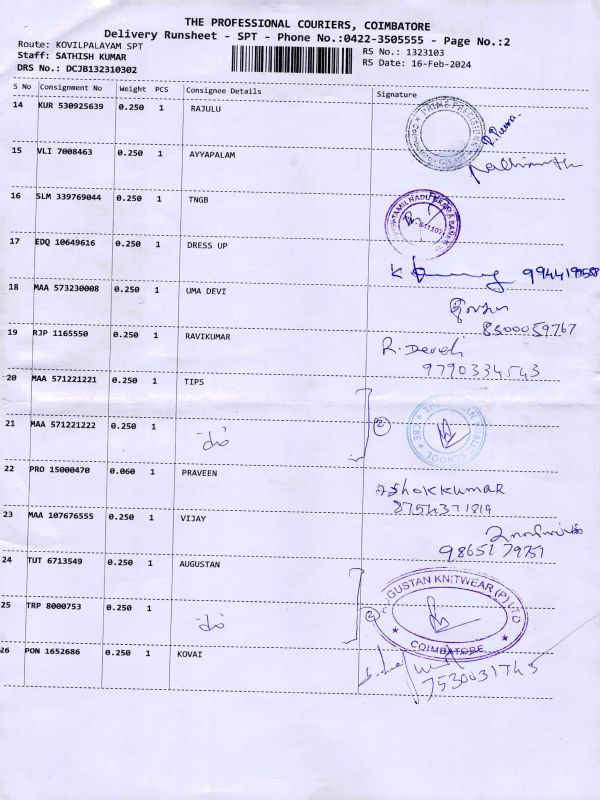 THE PROFESSIONAL COURIERS, COIMBATORE
Delivery Runsheet - SPT - Phone No.:0422-3505555 - Page No.:2
Route: KOVILPALAYAM SPT
Staff: SATHISH KUMAR
DRS No.: DCJB132310302
RS No.: 1323103
RS Date: 16-Feb-2024
S No Consignment No Weight PCS Consignee Details Signature
14 KUR 530925639 0.250 1 RAJULU
15 VLI 7008463 0.250 1 AYYAPALAM
16 SLM 339769044 0.250 1 TNGB
17 EDQ 10649616 0.250 1 DRESS UP
K
18 MAA 573230008 0.250 1 UMA DEVI
8300059767
19 RJP 1165550 0.250 1 RAVIKUMAR
R. Devi
9790334543
20 MAA 571221221 0.250 1 TIPS
21 MAA 571221222 0.250 1
2
22 PRO 15000470 0.060 1 PRAVEEN
Ashokkumar
8754371819
23 MAA 107676555 1 VIJAY
9865179751
24 TUT 6713549 0.250 1 AUGUSTAN
AUGUSTAN KNITWEAR (P) LTD
COIMBATORE
25 TRP 8000753 0.250 1
2
26 PON 1652686 0.250 1 KOVAI
7530031745